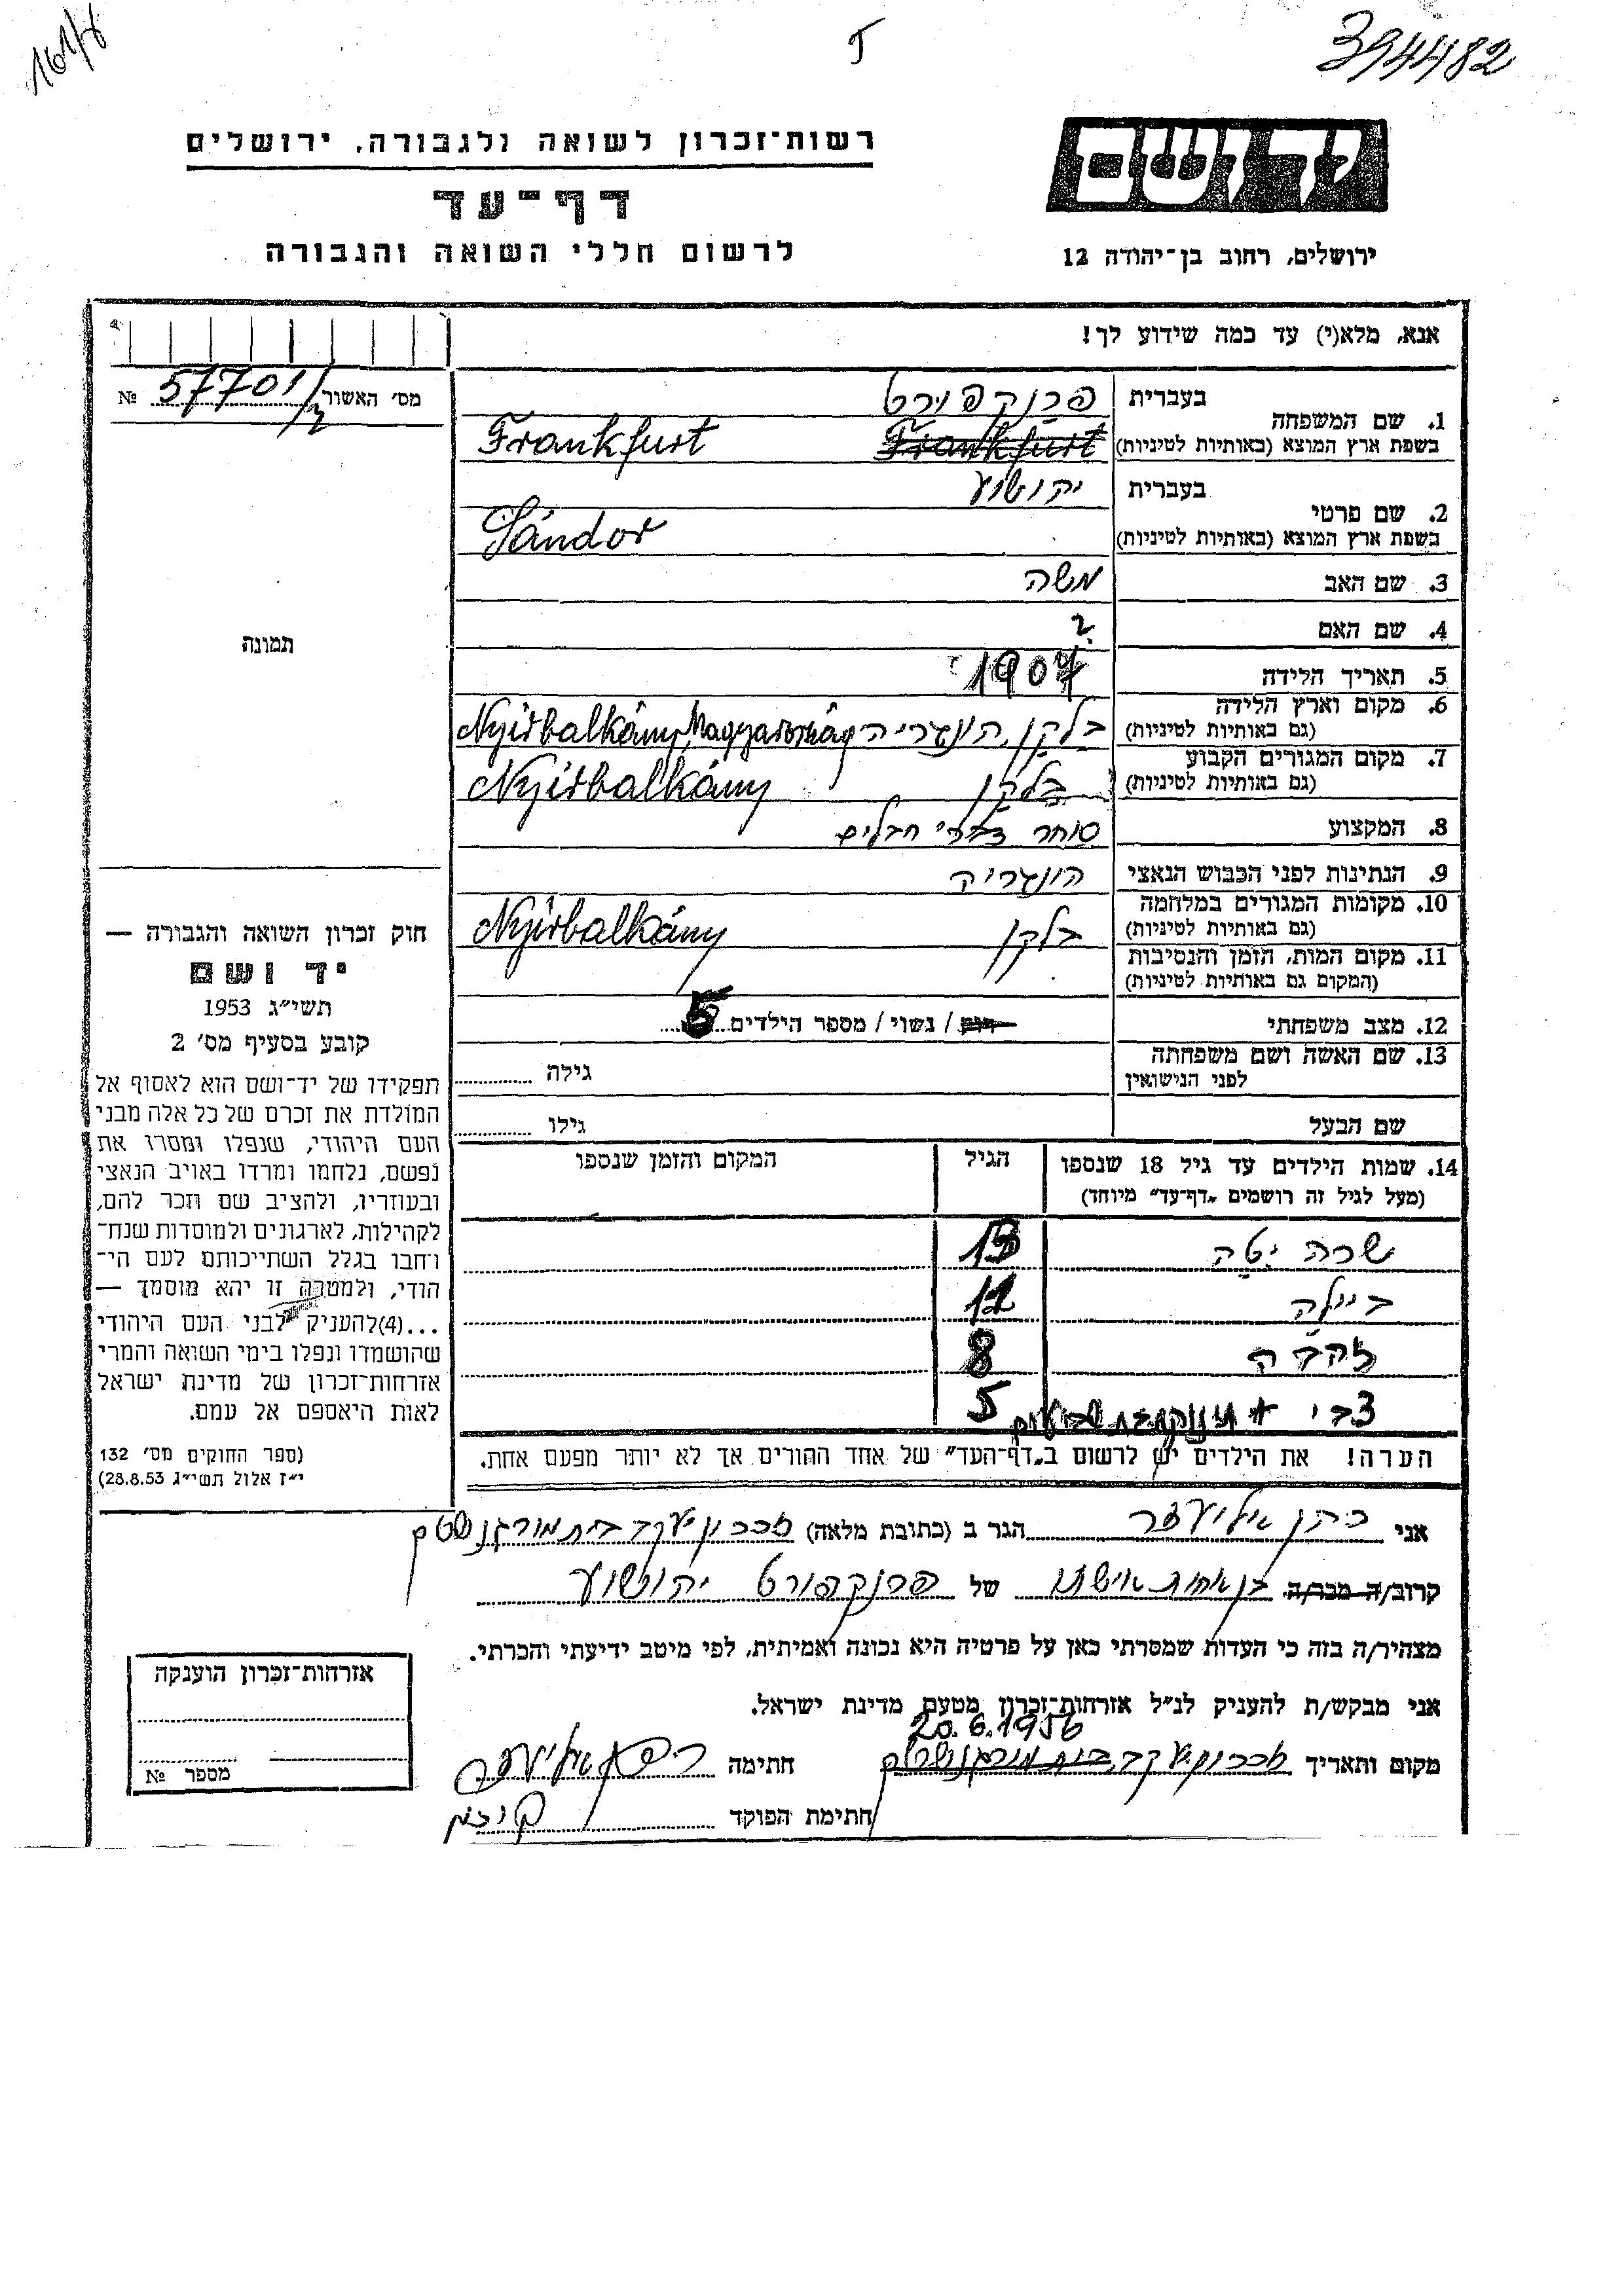 161/8
5
394482
רשות־זכרון לשואה ולגבורה, ירושלים
דף־עד
לרשום חללי השואה והגבורה
יד ושם
ירושלים, רחוב בן־יהודה 12
אנא, מלא(י) עד כמה שידוע לך!
מס' האשור 57701/ №
תמונה
1. שם המשפחה
בעברית פרנקפורט
בשפת ארץ המוצא (באותיות לטיניות) Frankfurt Frankfurt
2. שם פרטי
בעברית יהושוע
בשפת ארץ המוצא (באותיות לטיניות) Sándor
3. שם האב משה
4. שם האם ?
5. תאריך הלידה 1907
6. מקום וארץ הלידה
(גם באותיות לטיניות) בלקן, הונגריה Nyirbalkány, Magyarország
7. מקום המגורים הקבוע
(גם באותיות לטיניות) בלקן Nyirbalkány
8. המקצוע סוחר צרכי חבלים
9. הנתינות לפני הכבוש הנאצי הונגריה
10. מקומות המגורים במלחמה
(גם באותיות לטיניות) בלקן Nyirbalkány
11. מקום המות, הזמן והנסיבות
(המקום גם באותיות לטיניות)
12. מצב משפחתי רווק / נשוי / מספר הילדים 5
13. שם האשה ושם משפחתה
לפני הנישואין גילה
שם הבעל גילו
14. שמות הילדים עד גיל 18 שנספו הגיל המקום והזמן שנספו
(מעל לגיל זה רושמים „דף־עד" מיוחד)
שרה יטה 13
ביילה 12
זהבה 8
צבי + 5
הערה! את הילדים יש לרשום ב„דף־העד" של אחד ההורים אך לא יותר מפעם אחת.
חוק זכרון השואה והגבורה —
יד ושם
תשי״ג 1953
קובע בסעיף מס' 2
תפקידו של יד־ושם הוא לאסוף אל
המולדת את זכרם של כל אלה מבני
העם היהודי, שנפלו ומסרו את
נפשם, נלחמו ומרדו באויב הנאצי
ובעוזריו, ולהציב שם וזכר להם,
לקהילות, לארגונים ולמוסדות שנח־
רבו בגלל השתייכותם לעם הי־
הודי, ולמטרה זו יהא מוסמך —
...(4) להעניק לבני העם היהודי
שהושמדו ונפלו בימי השואה והמרי
אזרחות־זכרון של מדינת ישראל
לאות היאספם אל עמם.
(ספר החוקים מס' 132
י״ז אלול תשי״ג 28.8.53)
אני כהן אליעזר הגר ב (כתובת מלאה) זכרון יעקב בית מורגנשטרן
קרוב/ה מכר/ה בן אחות אישתו של פרנקפורט יהושוע
מצהיר/ה בזה כי העדות שמסרתי כאן על פרטיה היא נכונה ואמיתית, לפי מיטב ידיעתי והכרתי.
אני מבקש/ת להעניק לנ״ל אזרחות־זכרון מטעם מדינת ישראל.
20.6.1956
מקום ותאריך זכרון יעקב בית מורגנשטרן חתימה כהן אליעזר
חתימת הפוקד
אזרחות־זכרון הוענקה
מספר №